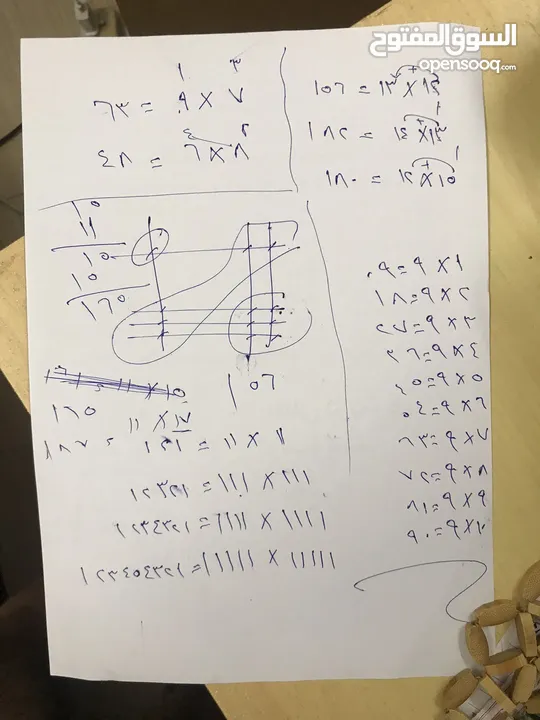 السوق المفتوح
opensooq.com
١٣ × ١٢ = ١٥٦
١٤ × ١٣ = ١٨٢
١٢ × ١٥ = ١٨٠
٦٣ = ٩ × ٧
٤٨ = ٦ × ٨
١٥
١١
١٥
١٥
١٦٥
١٥٦
١٦٥
١١ × ١٧
١٨٧
١٢١ = ١١ × ١١
١٢٣٢١ = ١١١ × ١١١
١٢٣٤٣٢١ = ١١١١ × ١١١١
١٢٣٤٥٤٣٢١ = ١١١١١ × ١١١١١
٠٩ = ٩ × ١
١٨ = ٩ × ٢
٢٧ = ٩ × ٣
٣٦ = ٩ × ٤
٤٥ = ٩ × ٥
٥٤ = ٩ × ٦
٦٣ = ٩ × ٧
٧٢ = ٩ × ٨
٨١ = ٩ × ٩
٩٠ = ٩ × ١٠